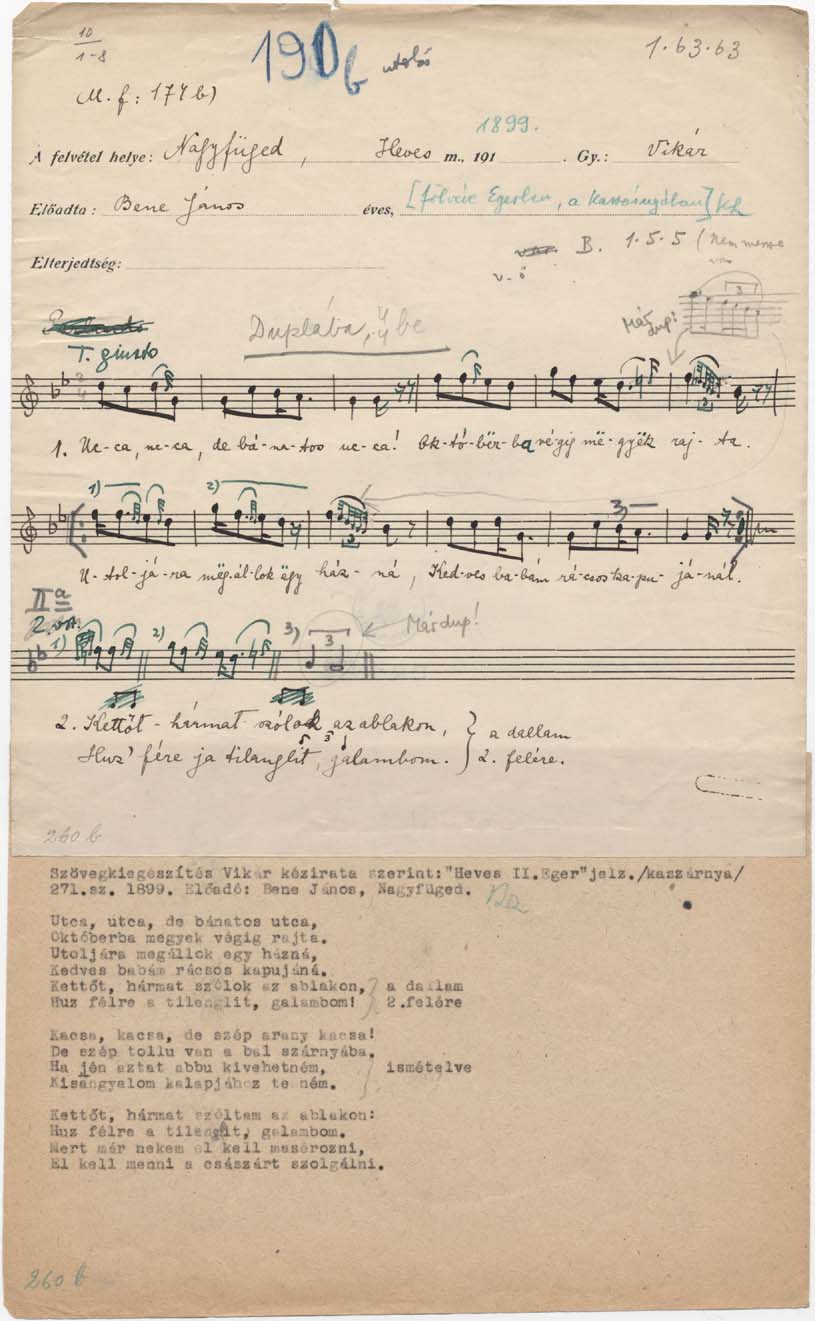 10
1-8
190b utolsó
1.63.63
M. f: 174 b)
1899.
A felvétel helye: Nagyfüged, Heves m., 191 . Gy.: Vikár
Előadta: Bene János éves, [fölvéve Egerben, a kaszárnyában]
B. 1.5.5 (Nem
Elterjedtség:
v. ö
Duplába, 4/4 be
Már dup:
3
T. giusto
2
4
2
1. Uc-ca, uc-ca, de bá-na-tos uc-ca! Ok-tó-bër-ba vé-gig më-gyëk raj-ta.
1) 2) 3)
2
U-tol-já-ra mëg-ál-lok ëgy ház-ná, Ked-ves ba-bám rá-csos ka-pu-já-nál.
IIa
2. vsz.
1) 2) 3) 3 Már dup!
2. Kettőt-hármat szólok az ablakon, } a dallam
3
Huz' fére ja tilanglit, galambom. } 2. felére.
260 b
Szövegkiegészítés Vikár kézirata szerint:"Heves II.Eger"jelz./kaszárnya/
271.sz. 1899. Előadó: Bene János, Nagyfüged.
Utca, utca, de bánatos utca,
Októberba megyek végig rajta.
Utoljára megállok egy házná,
Kedves babám rácsos kapujáná.
Kettőt, hármat szólok az ablakon, a dallam
Huz félre a tilenglit, galambom! 2.felére
Kacsa, kacsa, de szép arany kacsa!
De szép tollu van a bal szárnyába.
Ha jén aztat abbu kivehetném, ismételve
Kisangyalom kalapjához tenném.
Kettőt, hármat szóltam az ablakon:
Huz félre a tilenglit, galambom.
Mert már nekem el kell masérozni,
El kell menni a császárt szolgálni.
260 b